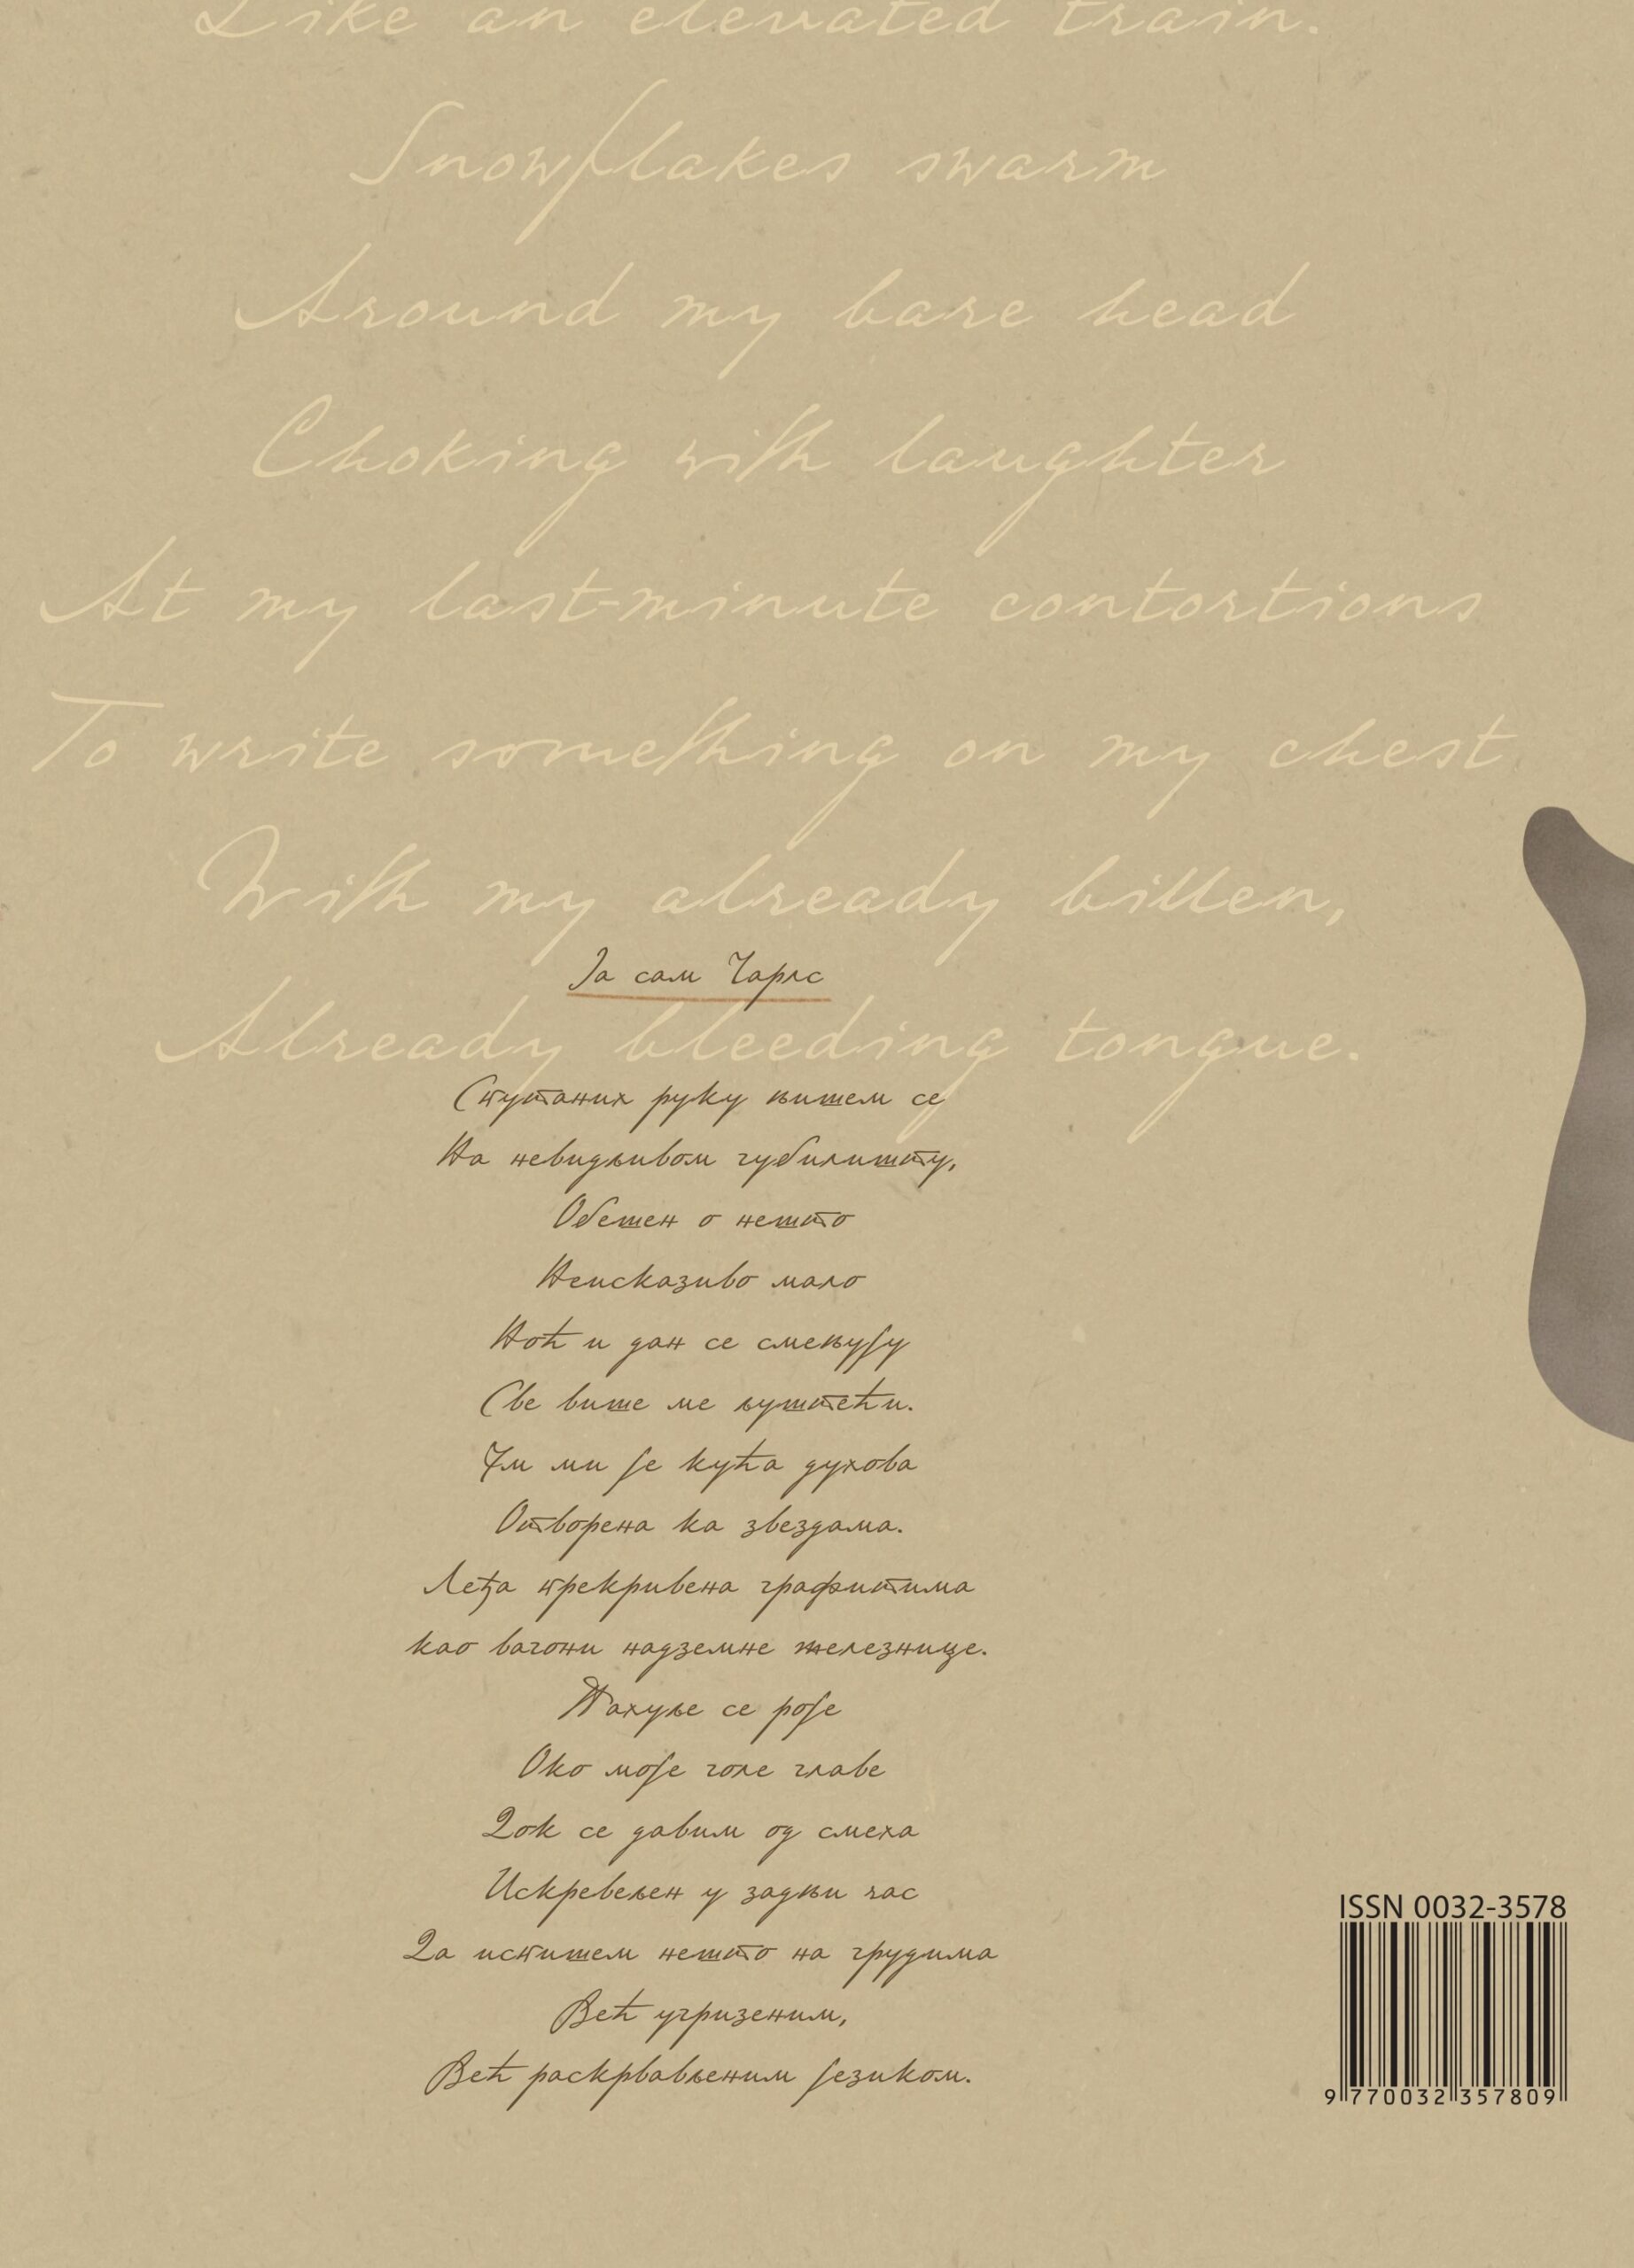 Like an elevated train.
Snowflakes swarm
Around my bare head
Choking with laughter
At my last-minute contortions
To write something on my chest
With my already bitten,
Already bleeding tongue.
Ја сам Чарлс
Спутаних руку њишем се
На невидљивом губилишту,
Обешен о нешто
Неисказиво мало
Ноћ и дан се смењују
Све више ме љуштећи.
Ум ми је кућа духова
Отворена ка звездама.
Леђа прекривена графитима
као вагони надземне железнице.
Пахуље се роје
Око моје голе главе
Док се давим од смеха
Искревељен у задњи час
Да испишем нешто на грудима
Већ угризеним,
Већ раскрвављеним језиком.
ISSN 0032-3578
9 770032 357809